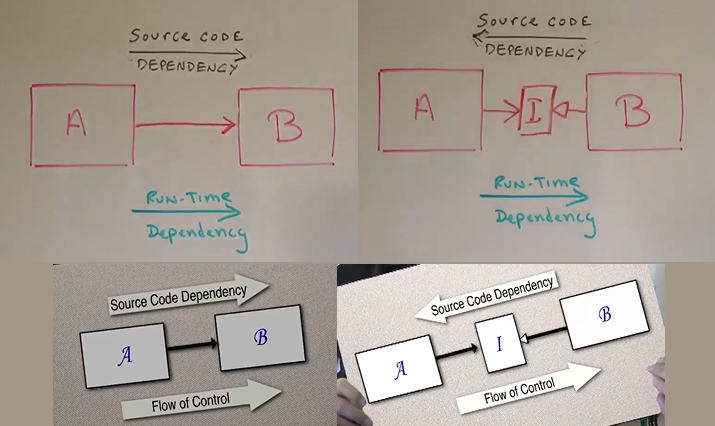 Source code
DEPENDENCY
A
B
Run-Time
Dependency
Source code
DEPENDENCY
A
I
B
Run-Time
Dependency
Source Code Dependency
A
B
Flow of Control
Source Code Dependency
A
I
B
Flow of Control